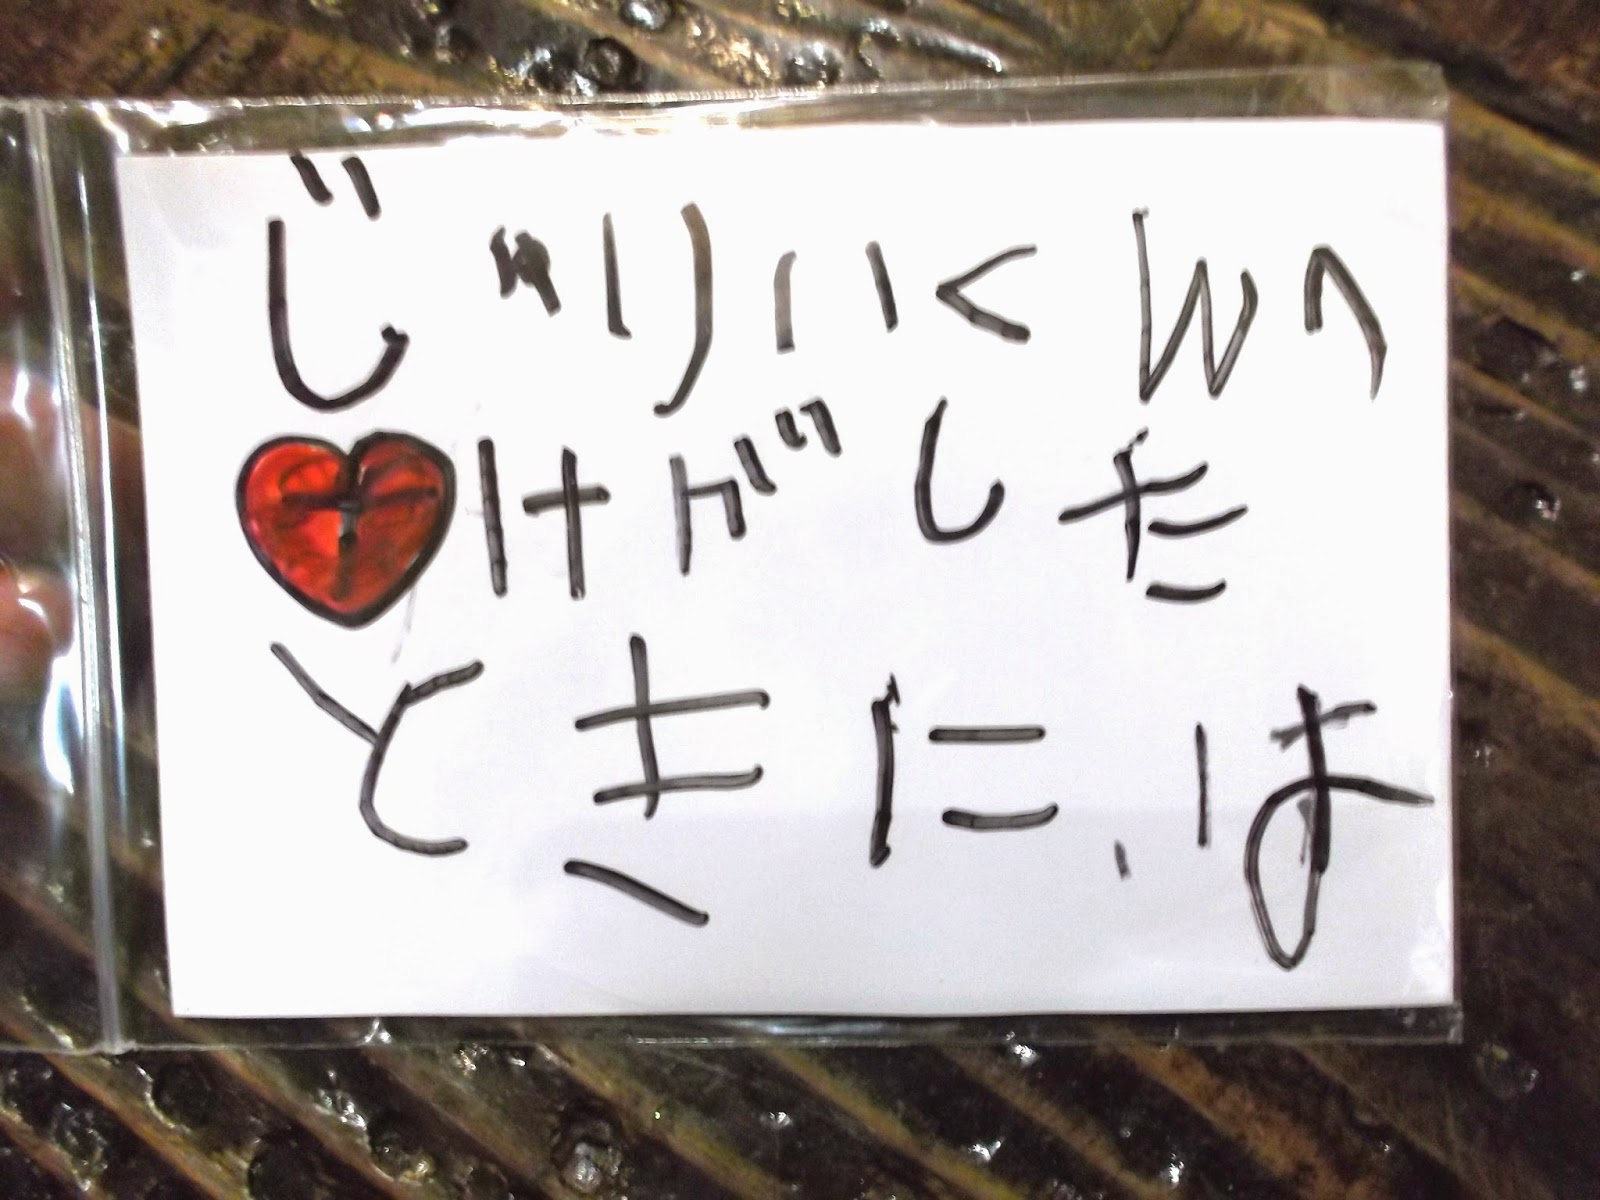 じゅりいくんへ
けがした
ときには